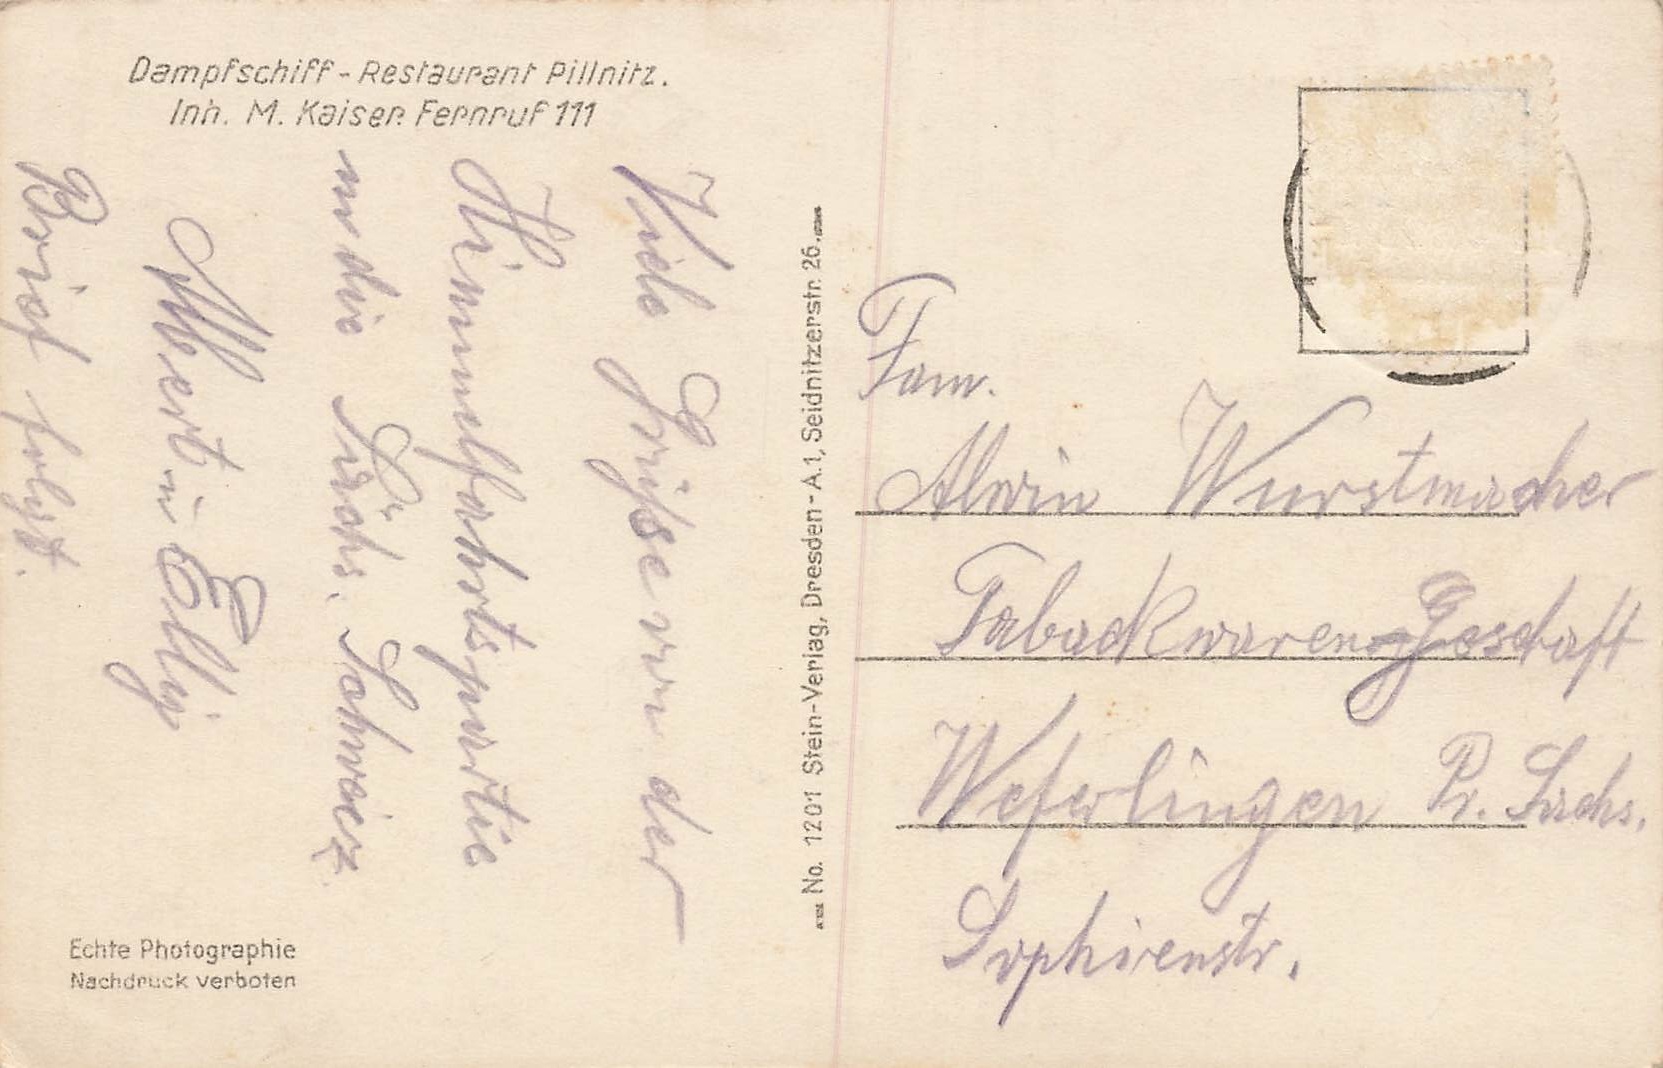 Dampfschiff-Restaurant Pillnitz.
Inh. M. Kaiser. Fernruf 111
Viele Grüsse von der
Himmelfahrtspartie
in die Sächs. Schweiz
Albert u Elly
Brief folgt.
No. 1201 Stein-Verlag, Dresden-A.1, Seidnitzerstr. 26.
Fam.
Alwin Wurstmacher
Tabackwaren-Geschäft
Weferlingen Pr. Sachs.
Sophienstr.
Echte Photographie
Nachdruck verboten